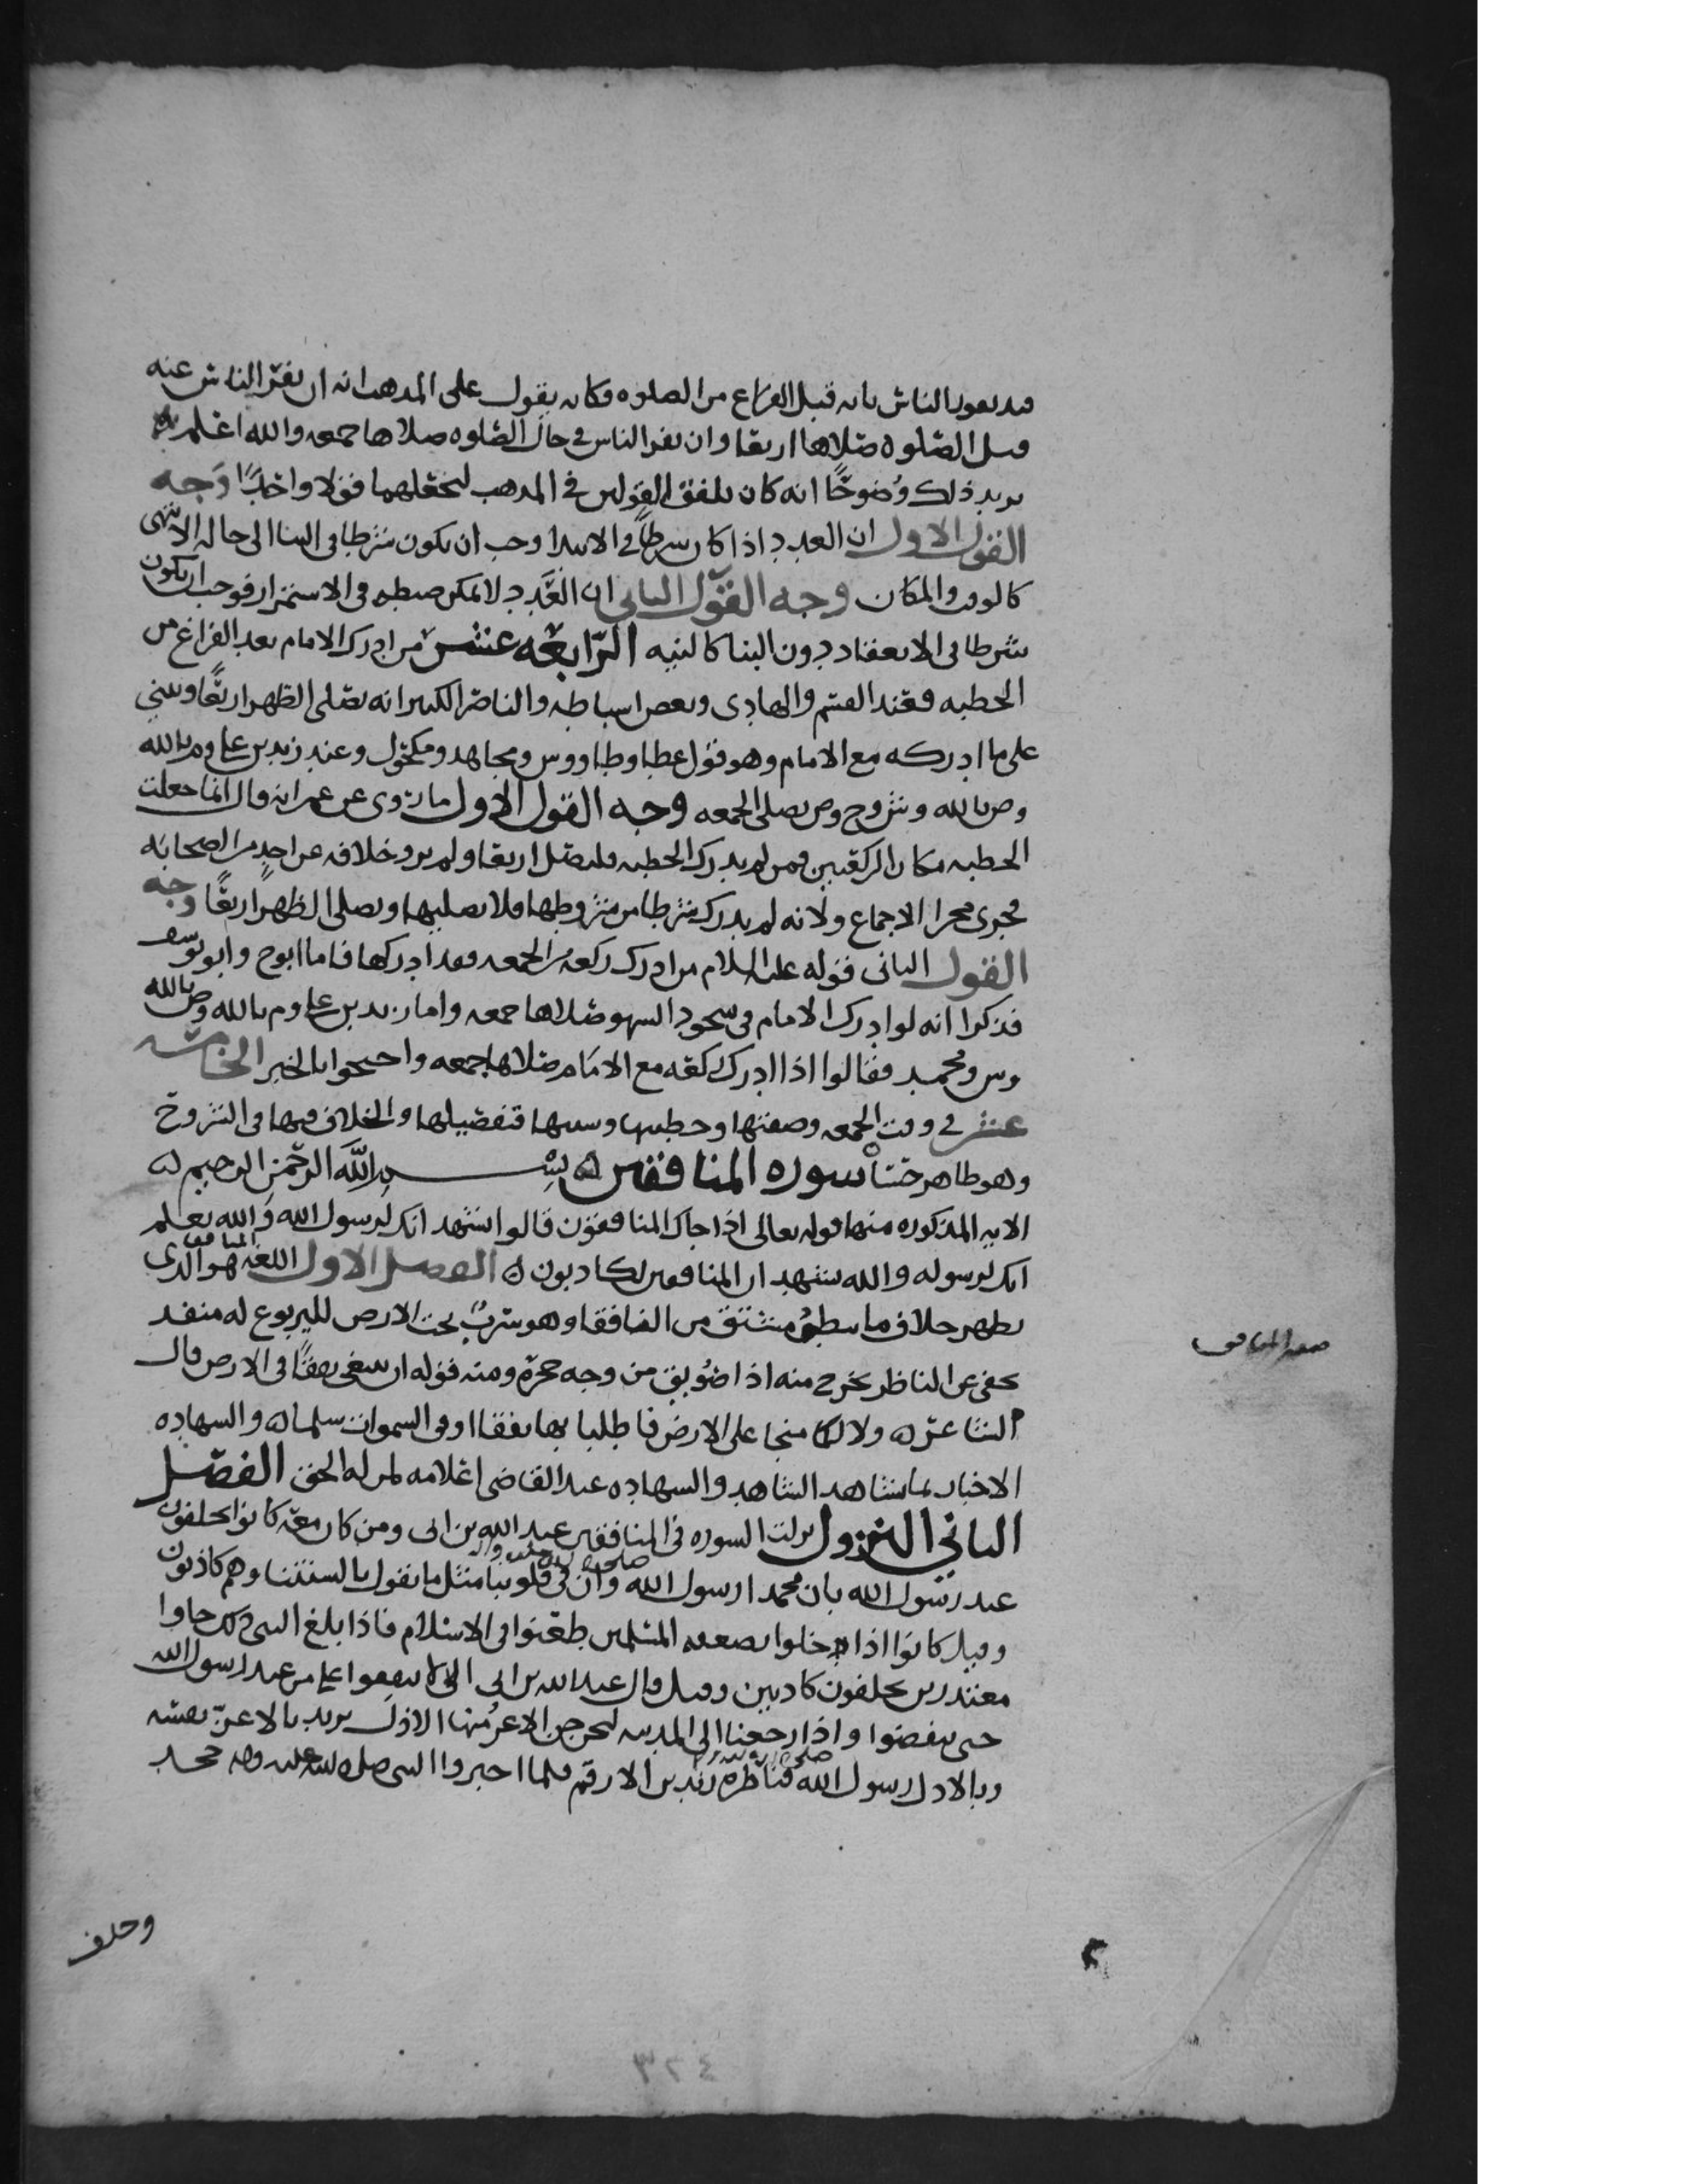 قيد بعود الناس بانه قبل الفراغ من الصلوه فكانه يقول على المذهب انه ان نفر الناس عنه
قبل الصلوه صلاها اربعا وان نفر الناس في حال الصلوه صلاها جمعه والله اعلم
يزيد ذلك وضوحًا انه كان يلفق القولين في المذهب ليجعلهما قولا واحدًا وجه
القول الاول ان العدد اذا كان شرطا في الابتدا وجب ان يكون شرطا في البنا الى حاله الانتهى
كالوقت والمكان وجه القول الثاني ان العدد لا يمكن ضبطه في الاستمرار فوجب ان يكون
شرطا في الانعقاد دون البنا كالنيه الرّابعه عشر من ادرك الامام بعد الفراغ من
الخطبه فعند القسم والهادي وبعض اسباطه والناصر الكبير انه يصلي الظهر اربعًا ويبني
على ما ادركه مع الامام وهو قول عطا وطاووس ومجاهد ومكحول وعند زيد بن علي وم بالله
وص بالله وش وح وص يصلي الجمعه وجه القول الاول ما روى عن عمر انه قال انما جعلت
الخطبه مكان الركعتين فمن لم يدرك الخطبه فليصل اربعا ولم يرو خلافه عن احد من الصحابه
فجرى مجرا الاجماع ولانه لم يدرك شرطا من شروطها فلا يصليها ويصلي الظهر اربعًا وجه
القول الثاني قوله عليه السلام من ادرك ركعه من الجمعه فقد ادركها فاما ابوح وابو يوسف
فذكرا انه لو ادرك الامام في سجود السهو صلاها جمعه واما زيد بن علي وم بالله وص بالله
وس ومحمد فقالوا اذا ادرك ركعه مع الامام صلاها جمعه واحتجوا بالخبر الخامسه
عشر في وقت الجمعه وصفتها وخطبتها وسننها تفصيلها والخلاف فيها في الشروح
وهو ظاهر حسنا سوره المنافقين ه بسم الله الرحمن الرحيم ه
الايه المذكوره منها قوله تعالى اذا جاك المنافقون قالوا نشهد انك لرسول الله والله يعلم
انك لرسوله والله يشهد ان المنافقين لكاذبون ه الفصل الاول اللغه المنافق هو الذي
يظهر خلاف ما يبطن مشتق من النافقا وهو سرب تحت الارض لليربوع له منفد
يخفى عن الناظر يخرج منه اذا ضويق من وجه جحره ومنه قوله ان تبتغي نفقًا في الارض قال
الشاعر ه ولا لكما منجا على الارض فاطلبا بها نفقا او في السموات سلما ه والشهاده
الاخبار بما شاهد الشاهد والشهاده عند القاضي اعلامه لمن له الحق الفصل
الثاني النزول نزلت السوره في المنافقين عبد الله بن ابي ومن كان معه كانوا يحلفون
عند رسول الله صلى الله عليه واله بان محمدا رسول الله وان في قلوبنا مثل ما نقول بالسنتنا وهم كاذبون
وقيل كانوا اذا خلوا بضعفه المسلمين طعنوا في الاسلام فاذا بلغ النبي ذلك جاوا
معتذرين يحلفون كاذبين وقيل قال عبد الله بن ابي لا تنفقوا على من عند رسول الله
حتى ينفضوا واذا رجعنا الى المدينه ليخرجن الاعز منها الاذل يريد بالاعز نفسه
وبالاذل رسول الله صلى الله عليه فناظره زيد بن الارقم فلما اخبروا النبي صلى الله عليه واله جحد
صفه المنافق
وحلف
٣٢٤